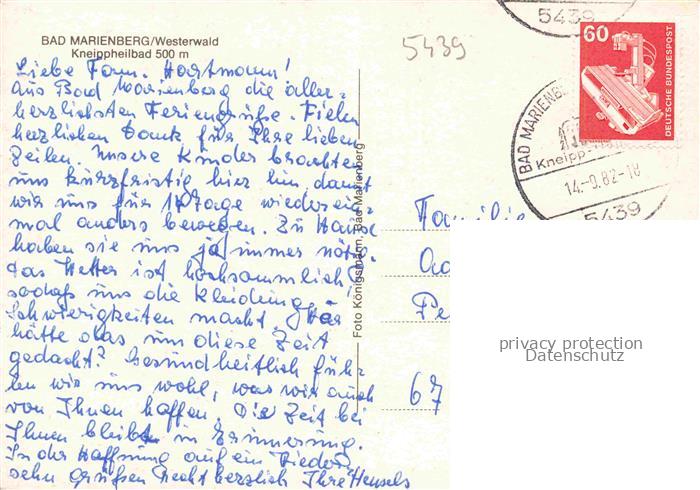 BAD MARIENBERG/Westerwald
Kneippheilbad 500 m
Liebe Fam. Hartmann!
Aus Bad Marienberg die aller-
herzlichsten Feriengrüße. Vielen
herzlichen Dank für Ihre lieben
Zeilen. Unsere Kinder brachten
uns kurzfristig hier hin, damit
wir uns für 14 Tage wieder ein-
mal anders bewegen. Zu Hause
haben sie uns ja immer nötig.
Das Wetter ist hochsommerlich,
sodaß uns die Kleidung
Schwierigkeiten macht. Wer
hätte das um diese Zeit
gedacht? Gesundheitlich füh-
len wir uns wohl, was wir auch
von Ihnen hoffen. Die Zeit bei
Ihnen bleibt in Erinnerung.
In der Hoffnung auf ein Wieder-
sehn grüßen recht herzlich Ihre
Foto Königsmann, Bad Marienberg
5439
5439
60
DEUTSCHE BUNDESPOST
BAD MARIENBERG
Kneipp
14.-9.82-18
5439
Familie
Pe
67
privacy protection
Datenschutz